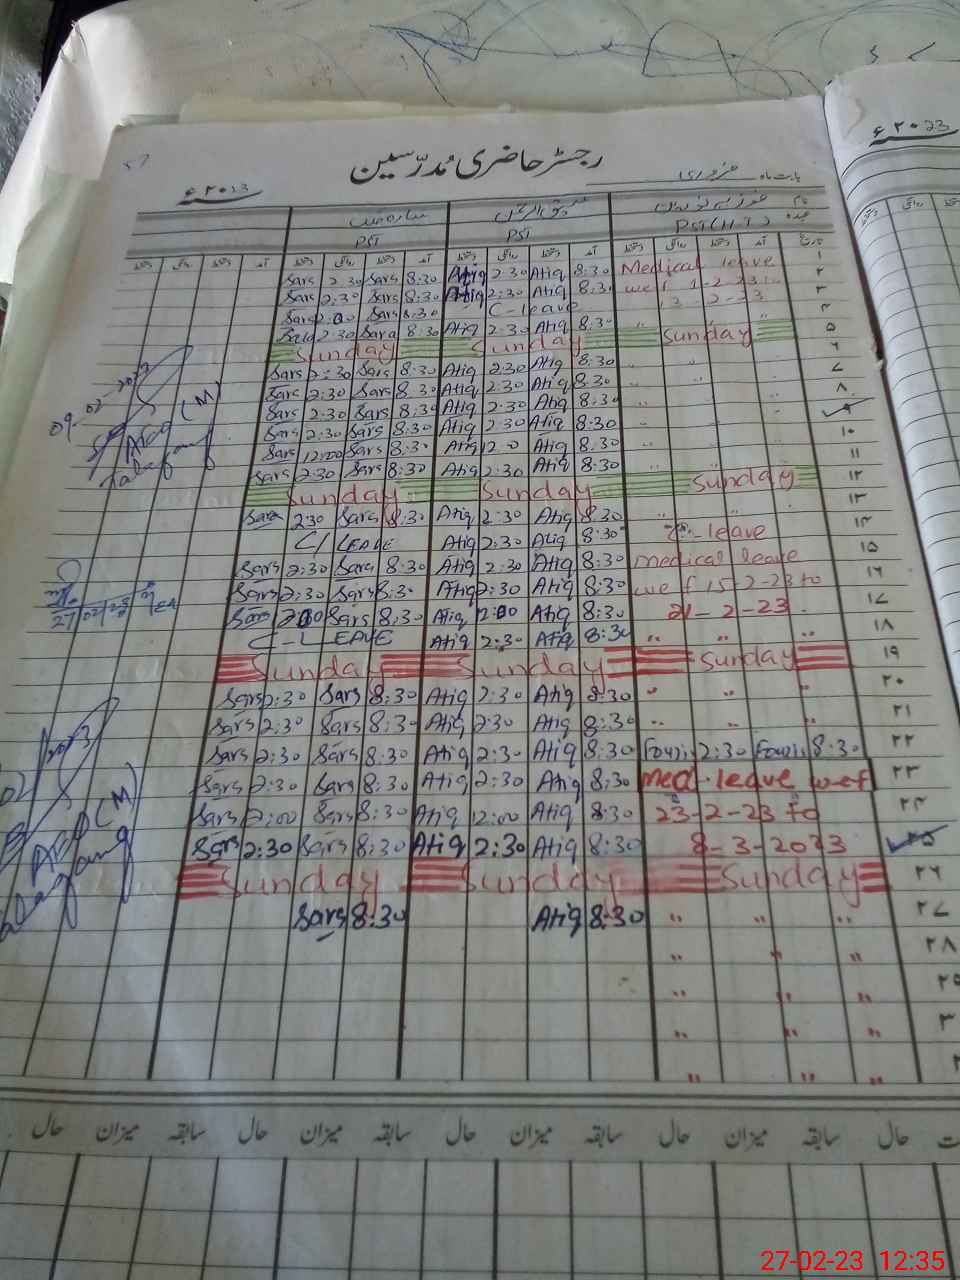 رجسٹر حاضری مُدرّسین
بابت ماہ فروری
۲۰23ء
۲۰23ء
نام
عہدہ
PST (H.T)
PST
PST
تاریخ آمد دستخط روانگی دستخط آمد دستخط روانگی دستخط آمد دستخط روانگی دستخط آمد دستخط روانگی دستخط
۱ Medical leave 8:30 Atiq 2:30 Atiq 8:30 Sars 2:30 Sars
۲ wef 1-2-23 to 8:30 Atiq 2:30 Atiq 8:30 Sars 2:30 Sars
۳ C-leave 8:30 Sars 2:00 Sars
۴ " " " 8:30 Atiq 2:30 Atiq 8:30 Sara 2:30
۵ Sunday Sunday Sunday
۶ " " " 8:30 Atiq 2:30 Atiq 8:30 Sars 2:30 Sars
۷ " " " 8:30 Atiq 2:30 Atiq 8:30 Sars 2:30 Sars
۸ " " " 8:30 Atiq 2:30 Atiq 8:30 Sars 2:30 Sars
۹ " " " 8:30 Atiq 2:30 Atiq 8:30 Sars 2:30 Sars
۱۰ " " " 8:30 Atiq 12:0 Atiq 8:30 Sars 12:00 Sars
۱۱ " " " 8:30 Atiq 2:30 Atiq 8:30 Sars 2:30 Sars
۱۲ Sunday Sunday Sunday
۱۳ " " " 8:30 Atiq 2:30 Atiq 8:30 Sars 2:30 Sara
۱۴ leave 8:30 Atiq 2:30 Atiq C/ LEAVE
۱۵ medical leave 8:30 Atiq 2:30 Atiq 8:30 Sara 2:30 Sars
۱۶ wef 15-2-23 to 8:30 Atiq 2:30 Atiq 8:30 Sars 2:30 Sars
۱۷ 21-2-23 8:30 Atiq 12:00 Atiq 8:30 Sars Sars
۱۸ " " " 8:30 Atiq 2:30 Atiq C-LEAVE
۱۹ Sunday Sunday Sunday
۲۰ " " " 8:30 Atiq 2:30 Atiq 8:30 Sars 2:30 Sars
۲۱ " " " 8:30 Atiq 2:30 Atiq 8:30 Sars 2:30 Sars
۲۲ 8:30 2:30 8:30 Atiq 2:30 Atiq 8:30 Sars 2:30 Sars
۲۳ Med-leave wef 8:30 Atiq 2:30 Atiq 8:30 Sars 2:30 Sars
۲۴ 23-2-23 to 8:30 Atiq 12:00 Atiq 8:30 Sars 2:00 Sars
۲۵ 8-3-2023 8:30 Atiq 2:30 Atiq 8:30 Sars 2:30 Sars
۲۶ Sunday Sunday Sunday
۲۷ " " " 8:30 Atiq 8:30 Sars
۲۸ " " "
۲۹ " " "
۳ " " "
" " "
09-02-2023
(M)
27/02/23
(M)
حال سابقہ میزان حال سابقہ میزان حال سابقہ میزان حال
27-02-23 12:35